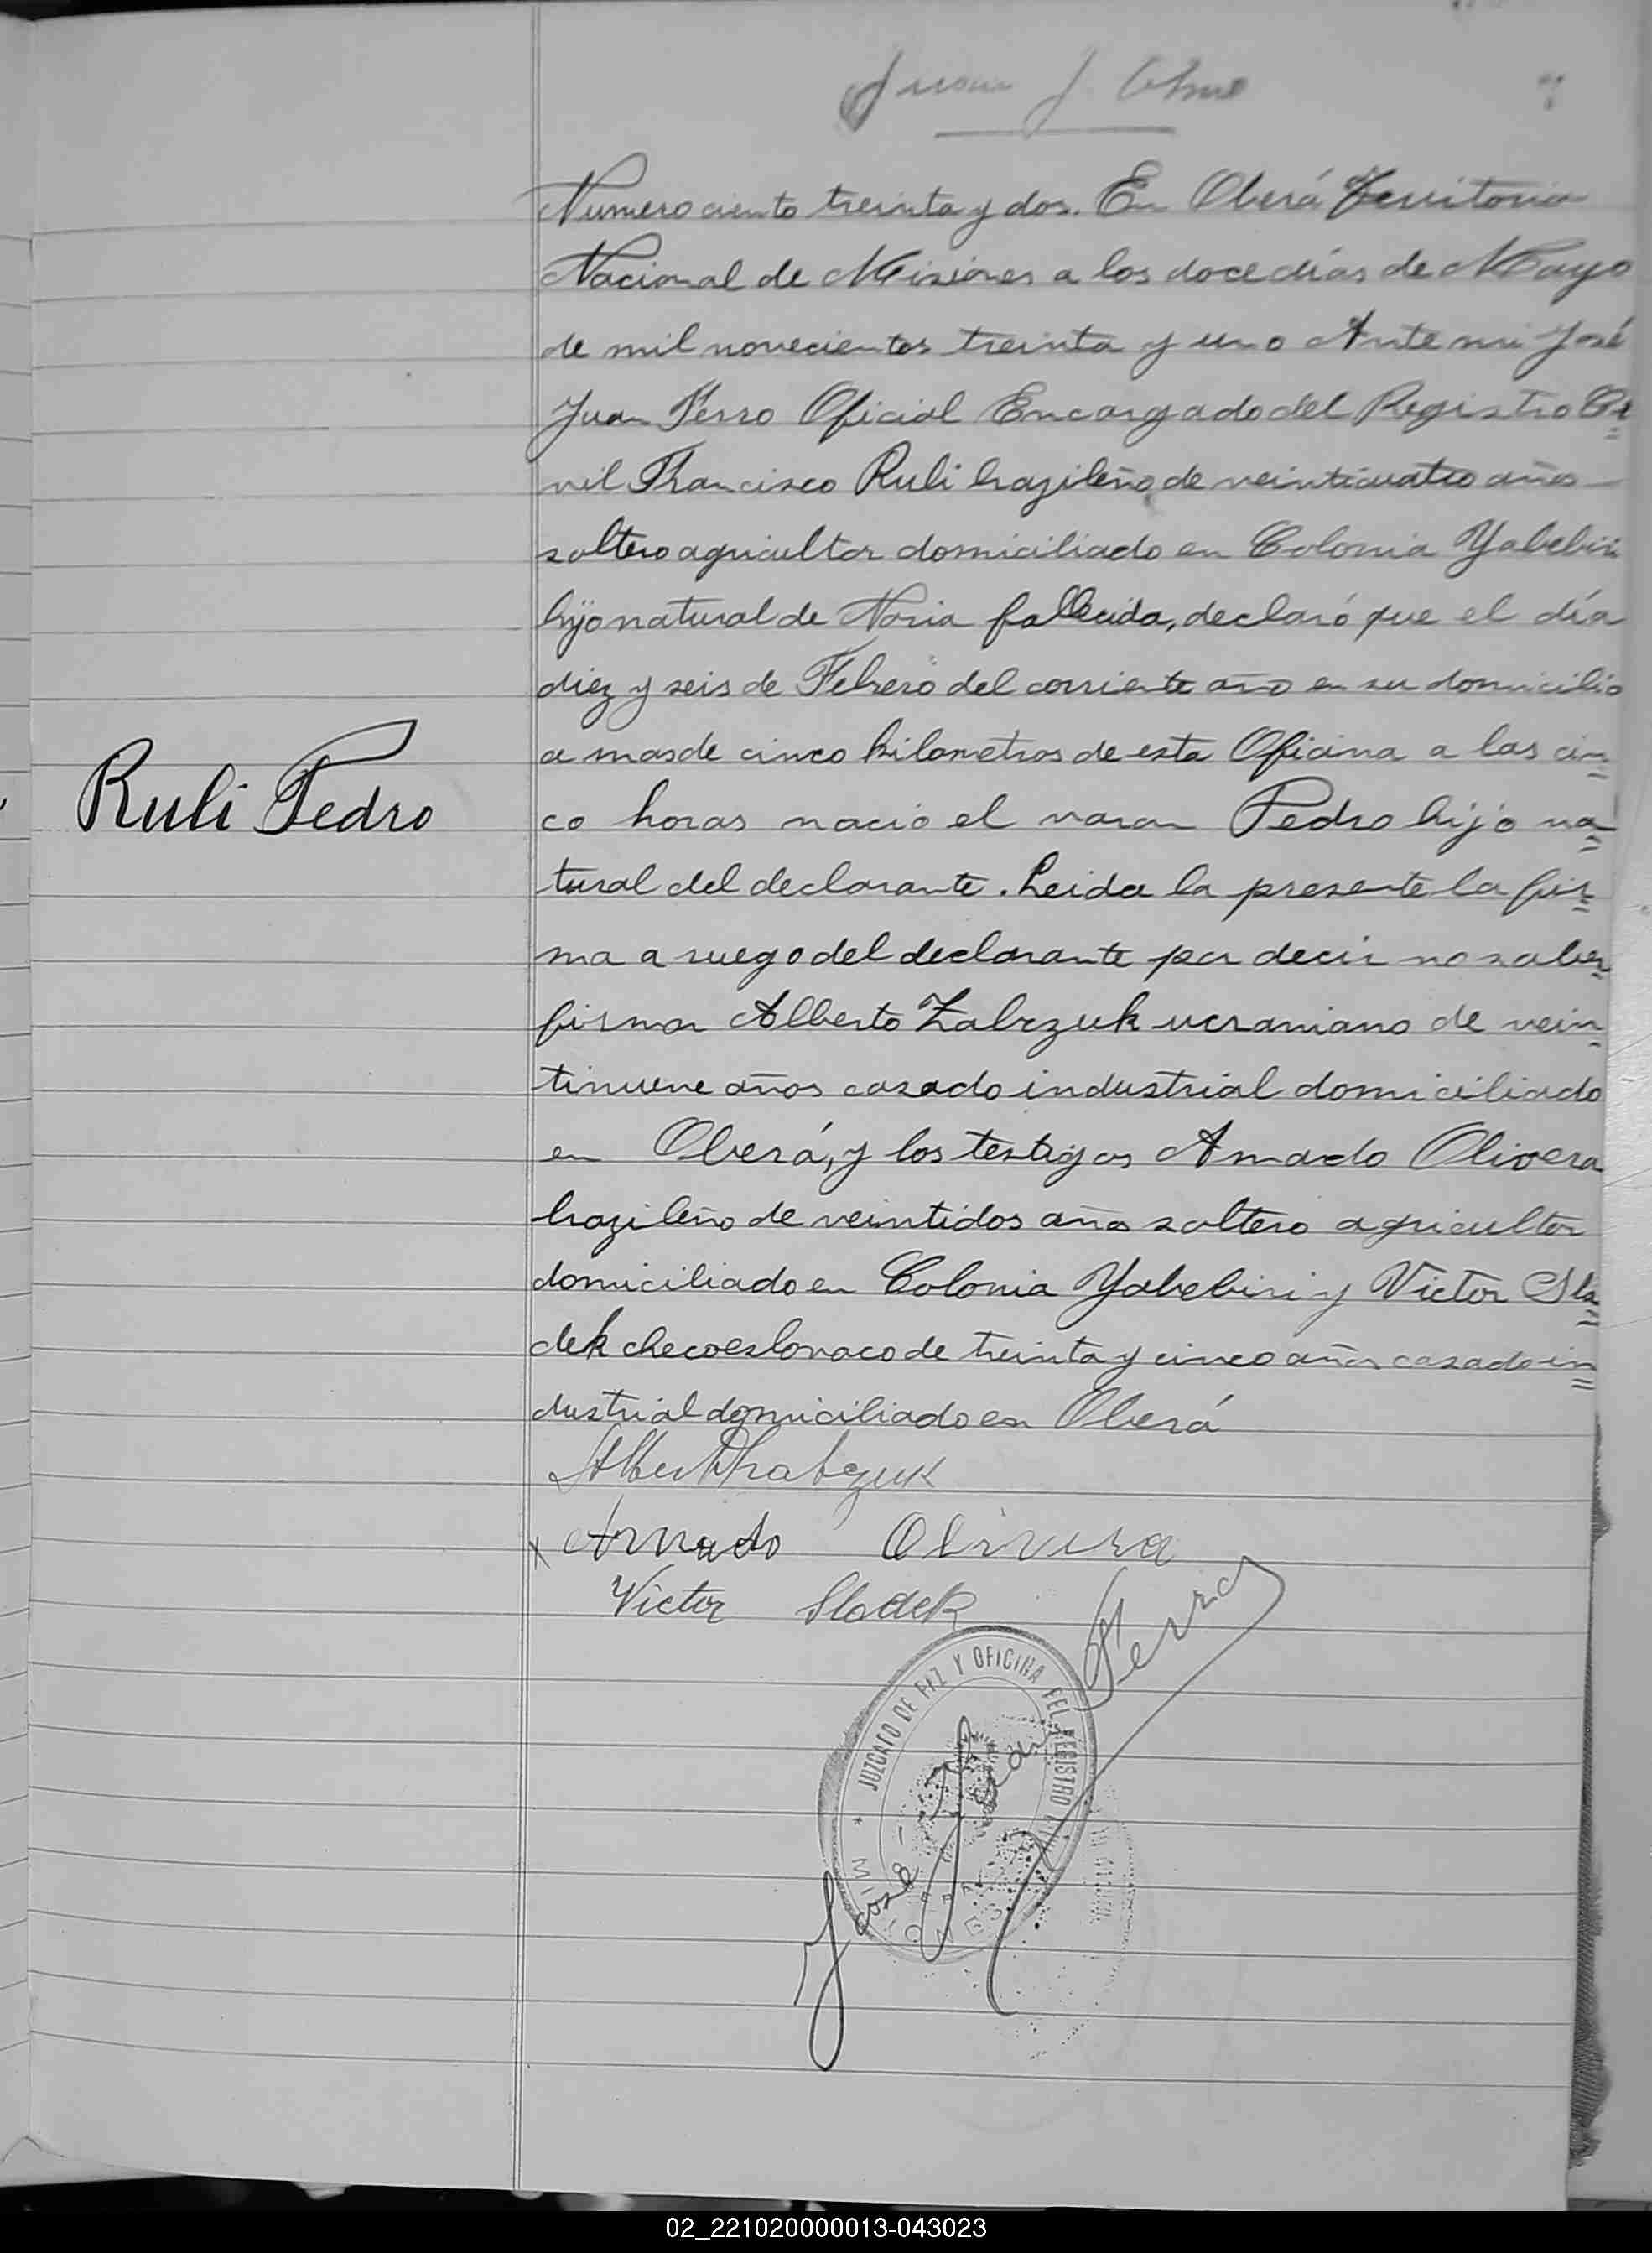 Juan J.
Numero ciento treinta y dos. En Oberá Territorio
Nacional de Misiones a los doce días de Mayo
de mil novecientos treinta y uno Ante mi José
Juan Ferro Oficial Encargado del Registro Ci
vil Francisco Ruli brazileño de veinticuatro años
soltero agricultor domiciliado en Colonia Yabebiri
hijo natural de Noria fallecida, declaró que el día
diez y seis de Febrero del corriente año en su domicilio
a mas de cinco kilometros de esta Oficina a las cin
Ruli Pedro
co horas nació el varon Pedro hijo na
tural del declarante. Leida la presente la fir
ma a ruego del declarante por decir no saber
firmar Alberto Zabczuk ucraniano de vein
tinueve años casado industrial domiciliado
en Oberá, y los testigos Amado Olivera
brazileño de veintidos años soltero agricultor
domiciliado en Colonia Yabebiri y Victor Sla
dek checoeslovaco de treinta y cinco años casado in
dustrial domiciliado en Oberá
Amado Olivera
Victor Sladek
José Juan Ferro
JUZGADO DE PAZ Y OFICINA DEL REGISTRO CIVIL
MISIONES
02_221020000013-043023